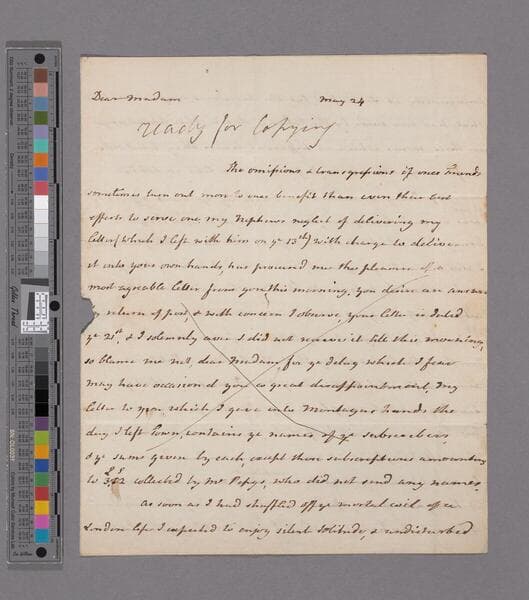 Dear Madam May 24
ready for Copying
The omissions & transgressions of ones Friends
sometimes turn out more to ones benefit than even their best
efforts to serve one, my Nephews neglect of delivering my
letter (which I left with him on ye 13th) with charge to deliver
it into your own hands, has procured me the pleasure of a
most agreable letter from you this morning, you desire an answer
by return of post, & with concern I observe your letter is dated
ye 21st, & I solemnly aver I did not receive it till this morning,
so blame me not, dear Madam, for ye delay which I fear
may have occasiond you so great disappointment. My
letter to you, which I gave into Montagus hands the
day I left Town, contains ye names of ye subscribers
& ye sums given by each, except those subscriptions amounting
to collected by Mr Pepys, who did not send any names.
as soon as I had shuffled off ye mortal coil of a
London life I expected to enjoy silent solitude, & undisturbed